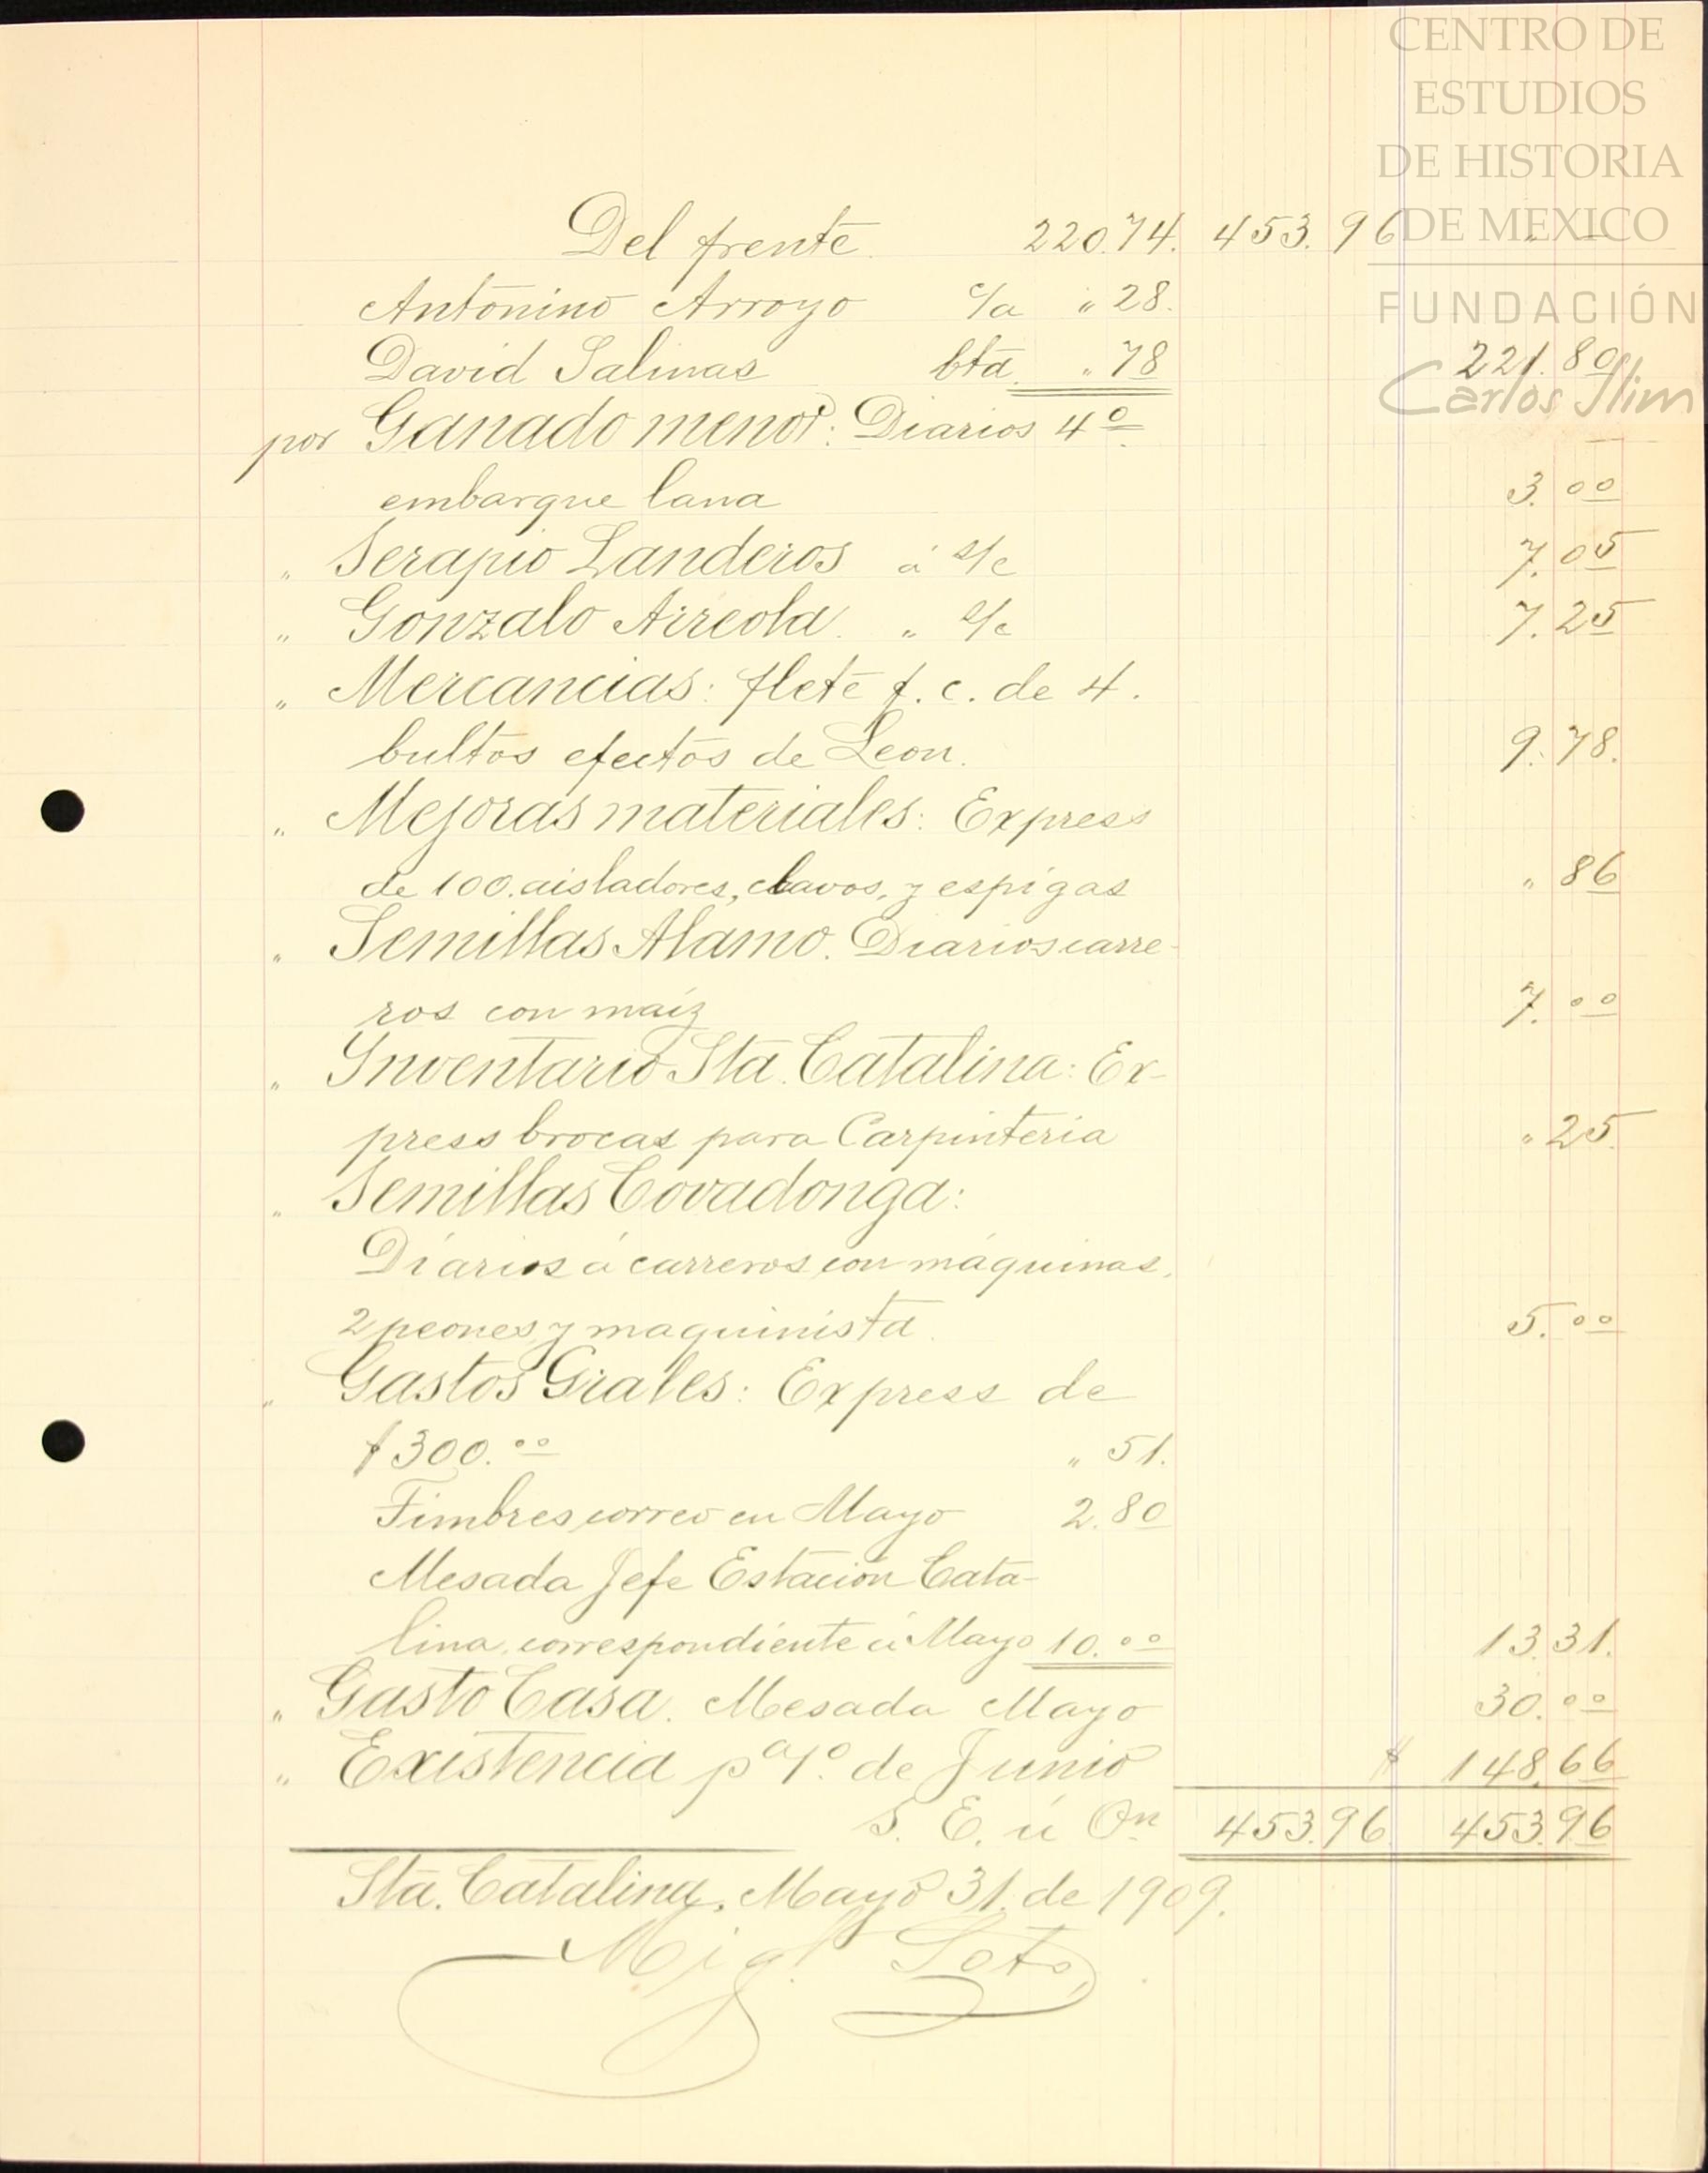 CENTRO DE
ESTUDIOS
DE HISTORIA
DE MEXICO
FUNDACIÓN
Carlos Slim
Del frente. 220.74. 453.96 " —
Antonino Arroyo c/a " 28.
David Salinas bta. " 78 221.80
por Ganado menor: Diarios 4º
embarque lana 3.00
" Serapio Landeros á s/c 7.05
" Gonzalo Arreola. " s/c 7.25
" Mercancias: flete f.c. de 4.
bultos efectos de Leon. 9.78.
" Mejoras materiales: Express
de 100. aisladores, clavos, y espigas " 86
" Semillas Alamo. Diarios carre-
ros con maiz 7.00
" Inventario Sta. Catalina: Ex-
press brocas para Carpinteria " 25.
" Semillas Covadonga:
Diarios á carreros con máquinas,
2 peones y maquinista. 5.00
" Gastos Grales: Express de
$300.00 " 51.
Timbres correo en Mayo 2.80
Mesada Jefe Estación Cata-
lina, correspondiente á Mayo 10.00 13.31.
" Gasto Casa. Mesada Mayo 30.00
" Existencia pª 1º de Junio $ 148.66
S. E. ú On 453.96 453.96
Sta. Catalina, Mayo 31. de 1909.
Migl Soto